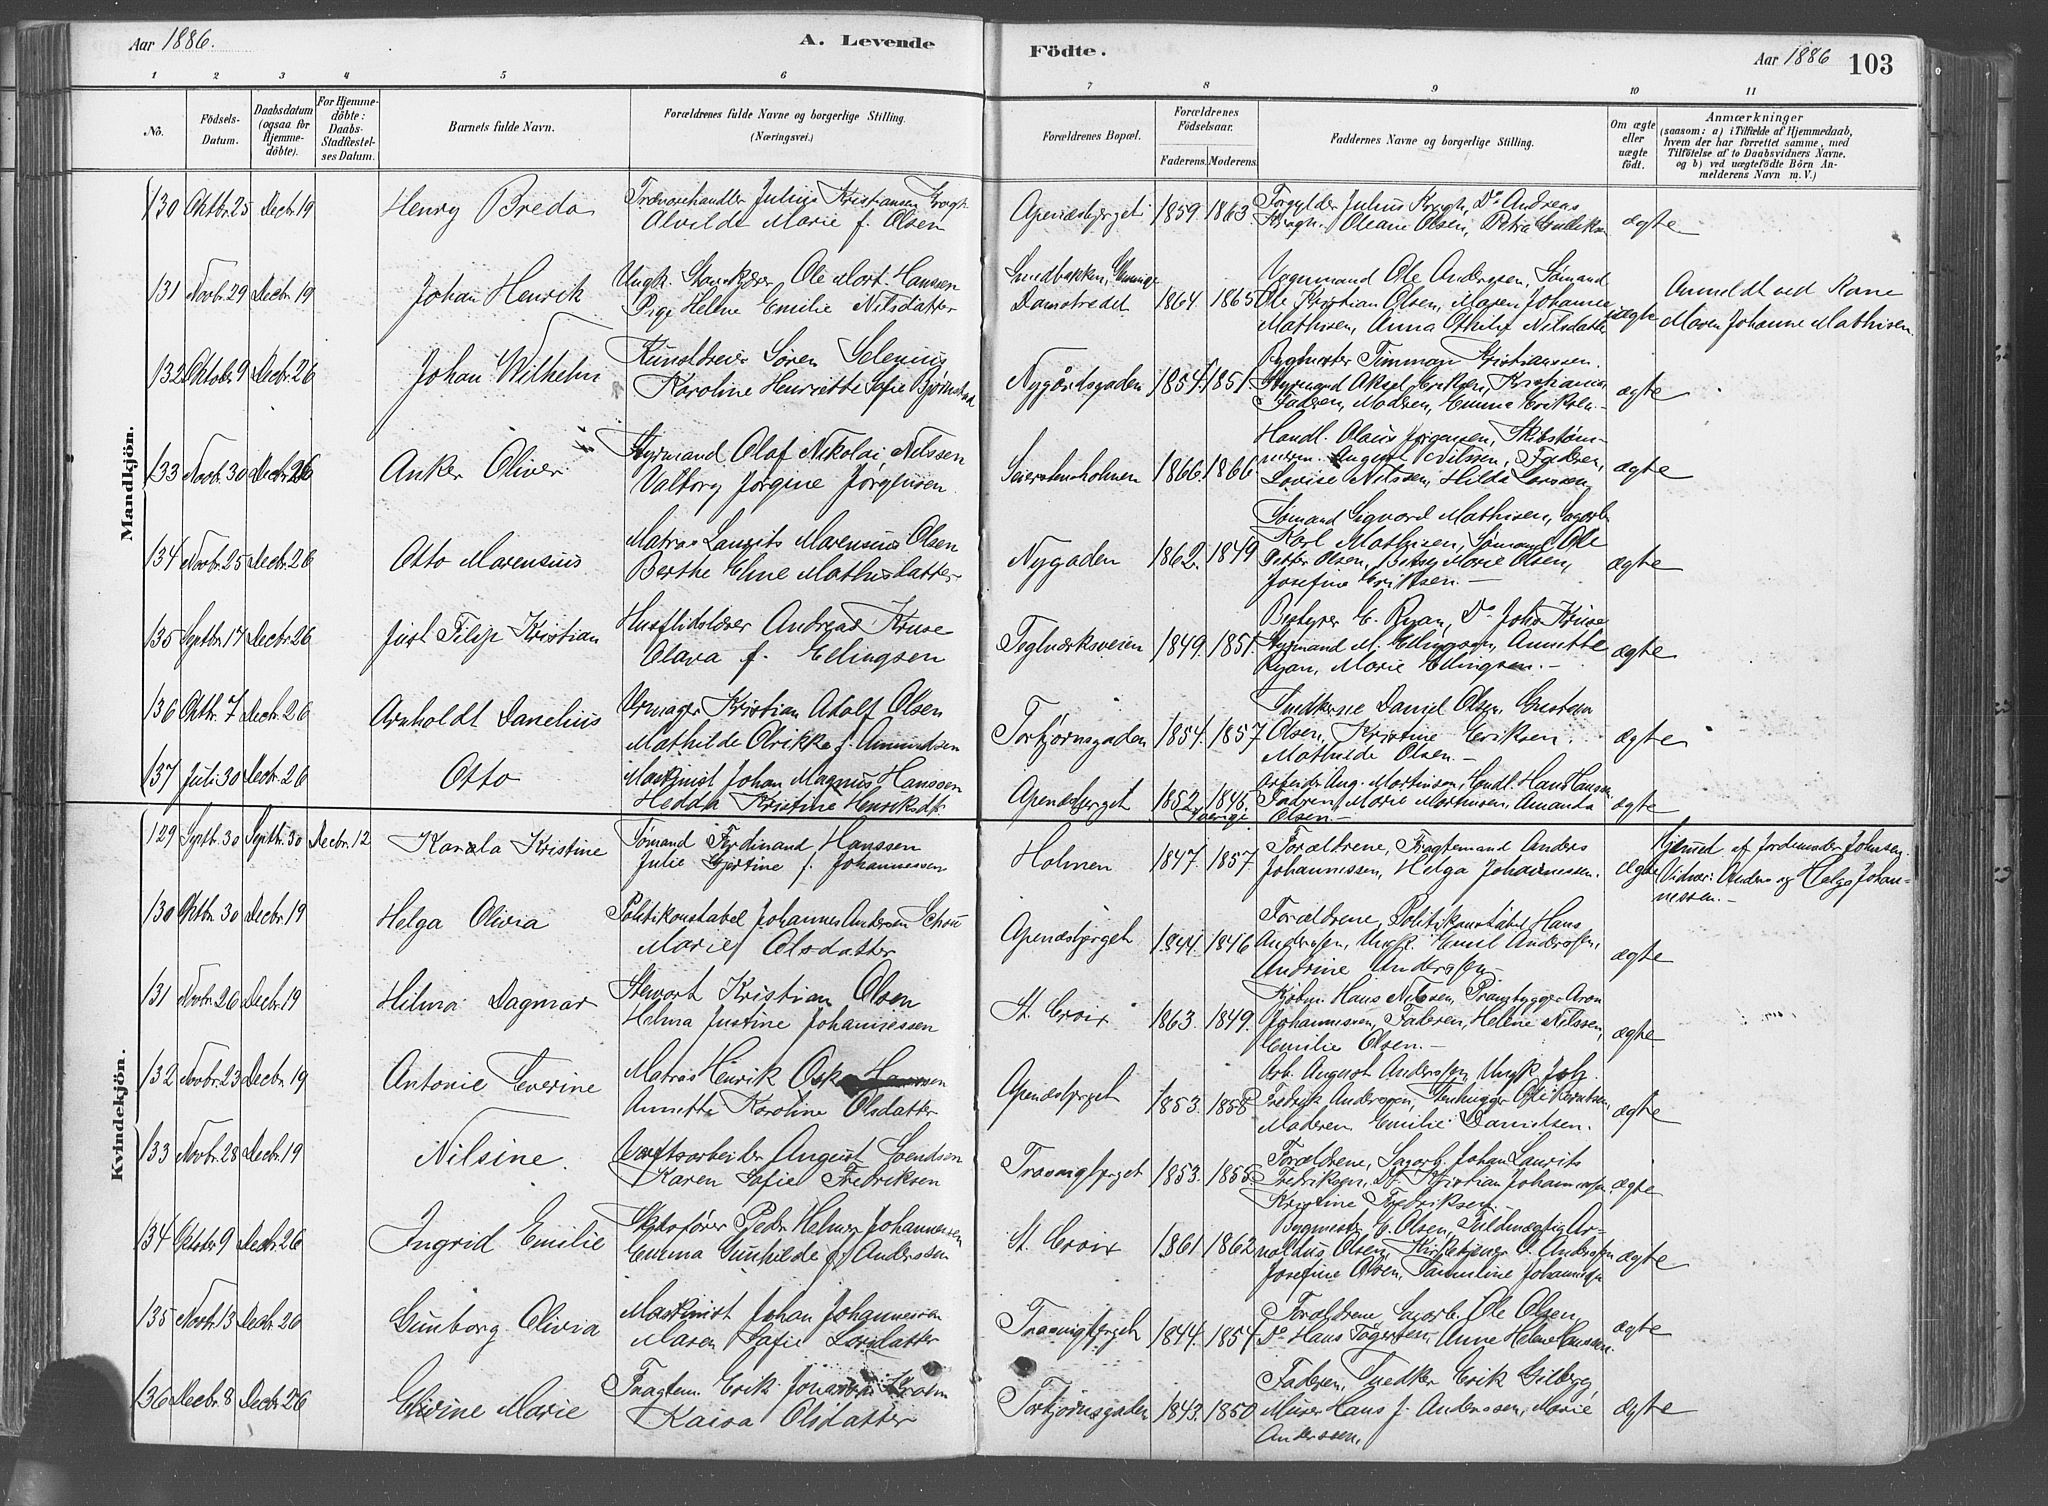 Aar 1886.
A. Levende
Födte.
Aar 1886
103
1 2 3 4 5 6 7 8 9 10 11
No.
Födsels-Datum.
Daabsdatum (ogsaa for Hjemme-döbte).
For Hjemme-döbte: Daabs-Stadfæstel-ses Datum.
Barnets fulde Navn.
Forældrenes fulde Navne og borgerlige Stilling. (Næringsvei.)
Forældrenes Bopæl.
Forældrenes Födselsaar.
Faderens. Moderens.
Faddernes Navne og borgerlige Stilling.
Om ægte eller uægte födt.
Anmærkninger
(saasom: a) i Tilfælde af Hjemmedaab,
hvem der har forrettet samme, med
Tilföielse af to Daabsvidners Navne,
og b) ved uægtefödte Börn An-
melderens Navn m. V.)
Mandkjön.
130 Oktbr. 25 Decbr. 19 Henry Breda
Trævarehandler Julius Kristiansen Krogh
Alvildt Marie f. Olsen
Apenæsbjerget 1859 1863
Forgylder Julius Krogh, Do Andreas
Krogh, Oleane Olsen, Petra Gulliksen
ægte
131 Novbr. 29 Decbr. 19 Johan Henrik
Ungk. Ole Mort. Hanssen
Pige Helene Emilie Nilsdatter
Smedbakken,
Damstredet 1864. 1865
Vognmand Ole Andersen, Sømand
Ole Kristian Olsen, Maren Johanne
Mathisen, Anna Othilie Nilsdatter
uægte
Anmeldt ved Kone
Maren Johanne Mathisen.
132 Oktober 9 Decbr. 26 Johan Wilhelm
Kunstdreier Søren Selenius
Karoline Henriette Sofie Bjørnstad
Nygårdsgaden 1854. 1851
Bygmester Timman Kristianssen.
Styrmand Aksel Eriksen, Kristiania
Faderen, Moderen, Emma Eriksen.
ægte
133 Novbr. 30 Decbr. 26 Anker Oliver
Styrmand Olaf Nikolai Nilssen
Valborg Jørgine Jørgensen.
1866. 1866
Handl. Olaus Jørgensen, Skibstøm-
merm. August Nilssen, Faderen,
Lovise Nilssen, Hilda Larssen
ægte
134 Novbr. 25 Decbr. 26 Otto Marensius
Matros Laurits Marensius Olsen
Berthe Eline Mathisdatter
Nygaden 1862. 1849
Sømand Sigvard Mathisen, Sagarb.
Karl Mathisen, Sømand Ole
Petter Olsen, Betsy Marie Olsen,
Josefine Eriksen.
ægte
135 Septbr. 17 Decbr. 26 Just Filip Kristian
Husflidslærer Andreas Kruse
Olava f. Ellingsen
Teglværksveien 1849. 1851.
Bestyrer E. Ryan, Do Johs Kruse
Styrmand M. Ellingsen, Annette
Ryan, Marie Ellingsen.
ægte
136 Oktbr. 7 Decbr. 26 Arnholdt Danelius
Urmager Kristian Adolf Olsen
Mathilde Olrikke f. Amundsen
Torbjørnsgaden 1854. 1857
Snedkersv. Daniel Olsen, Gustava
Olsen, Kristine Eriksen.
Mathilde Olsen.
ægte
137 Juli 30 Decbr. 26 Otto
Maskinist Johan Magnus Hanssen
Hedda Kristine Henriksdtr.
Apenæsbjerget 1852 1846
Sverige
Arbeider Aug. Martinsen, Handl. Hans Hansen,
Faderen, Marie Martinsen, Amanda
Olsen
ægte
Kvindekjön.
129 Septbr. 30 Septbr. 30 Decbr. 12 Karala Kristine
Sømand Ferdinand Hanssen
Julie Gjertine f. Johannessen
Holmen 1847. 1857.
Forældrene, Fragtemand Anders
Johannessen, Helga Johannessen.
ægte
Hjemmed. af Jordemoder Johnsen.
Vidner: Anders og Helga Johan-
nessen.
130 Oktbr. 30 Decbr. 19 Helga Olivia
Politikonstabel Johannes Andersen Schou
Marie Olsdatter
Apenæsbjerget 1844. 1846
Forældrene, Politikonstabel Hans
Anderssen, Ungk. Emil Anderssen,
Andrine Anderssen
ægte
131 Novbr. 26 Decbr. 19 Hilma Dagmar
Stewart Kristian Olsen
Helma Justine Johannessen
St. Croix 1863. 1849.
Kjøbm. Hans Nilssen, Prambygger Aron
Johannessen, Faderen, Helene Nilssen,
Emilie Olsen.
ægte
132 Novbr. 23 Decbr. 19 Antonie Severine
Matros Henrik Oskar
Annette Karoline Olsdatter
Apenæsbjerget 1853. 1858
Arb. August Anderssen, Ungk. Joh.
Fredrik Anderssen, Stenhugger Ole Knutsen,
Moderen Emilie Danielsen.
ægte
133 Novbr. 28 Decbr. 19 Nilsine.
Værftsarbeider August Svendsen
Karen Sofie Fredriksen
Trosvigbjerget 1853. 1855.
Forældrene, Sagarb. Johan Laurits
Fredriksen, Do Kristian Johannessen,
Kristine Fredriksen.
ægte
134 Oktober 9 Decbr. 26 Ingrid Emilie
Skibsfører Peder Helmer Johannessen
Emma Gunhilde f. Anderssen
St. Croix 1861 1862
Bygmester E. Olsen, Fuldmægtig Ar-
noldus Olsen, Kirketjener O. Anderssen
Josefine Olsen, Johannessen
ægte
135 Novbr. 13 Decbr. 26 Gunborg Olivia
Maskinist Johan Johannessen
Maren Sofie Larsdatter
Trosvigbjerget 1844. 1854.
Forældrene, Sagarb. Ole Olsen
Do Hans Anne Helene Hanssen
ægte
136 Decbr. 8 Decbr. 26 Elvine Marie
Fragtem. Erik
Kaisa Olsdatter
Torbjørnsgaden 1843. 1850
Faderen, Snedker Erik Gilberg,
Murer Hans J. Anderssen, Marie
Anderssen.
ægte